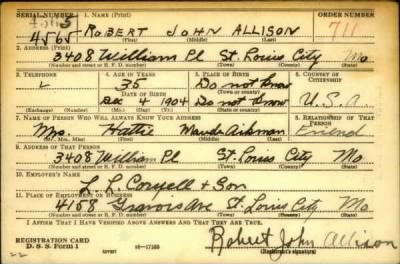 SERIAL NUMBER 1. NAME (Print) ORDER NUMBER
4565 ROBERT JOHN ALLISON 711
(First) (Middle) (Last)
2. ADDRESS (Print)
3408 William Pl St. Louis City Mo
(Number and street or R. F. D. number) (Town) (County) (State)
3. TELEPHONE 4. AGE IN YEARS 5. PLACE OF BIRTH 6. COUNTRY OF CITIZENSHIP
35 Do not know
DATE OF BIRTH (Town or county)
Dec 4 1904 Do not know U.S.A.
(Exchange) (Number) (Mo.) (Day) (Yr.) (State or country)
7. NAME OF PERSON WHO WILL ALWAYS KNOW YOUR ADDRESS 8. RELATIONSHIP OF THAT PERSON
Mrs. Hattie Maude Friend
(Mr., Mrs., Miss) (First) (Middle) (Last)
9. ADDRESS OF THAT PERSON
3408 William Pl St. Louis City Mo
(Number and street or R. F. D. number) (Town) (County) (State)
10. EMPLOYER'S NAME
L. L. & Son
11. PLACE OF EMPLOYMENT OR BUSINESS
4158 Gravois Ave St. Louis City Mo
(Number and street or R. F. D. number) (Town) (County) (State)
I AFFIRM THAT I HAVE VERIFIED ABOVE ANSWERS AND THAT THEY ARE TRUE.
REGISTRATION CARD
D. S. S. Form 1 (over) 16—17105
Robert John Allison
(Registrant's signature)